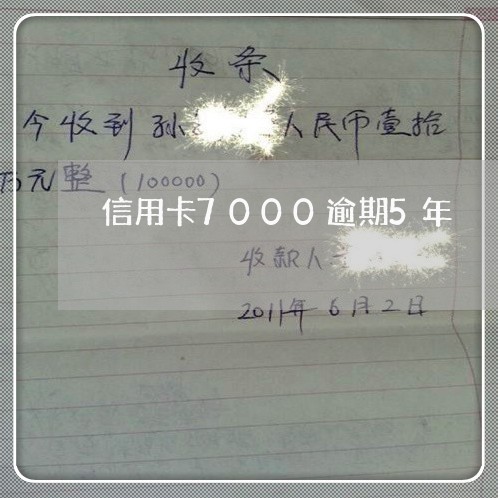 收条
今收到孙 人民币壹拾
万元整(100000)
信用卡7000逾期5年
收款人
2011年6月2日